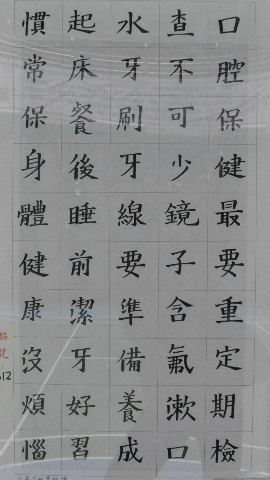 口腔保健最要重定期檢
查不可少鏡子含氟漱口
水牙刷牙線要準備養成
起床餐後睡前潔牙好習
慣常保身體健康沒煩惱